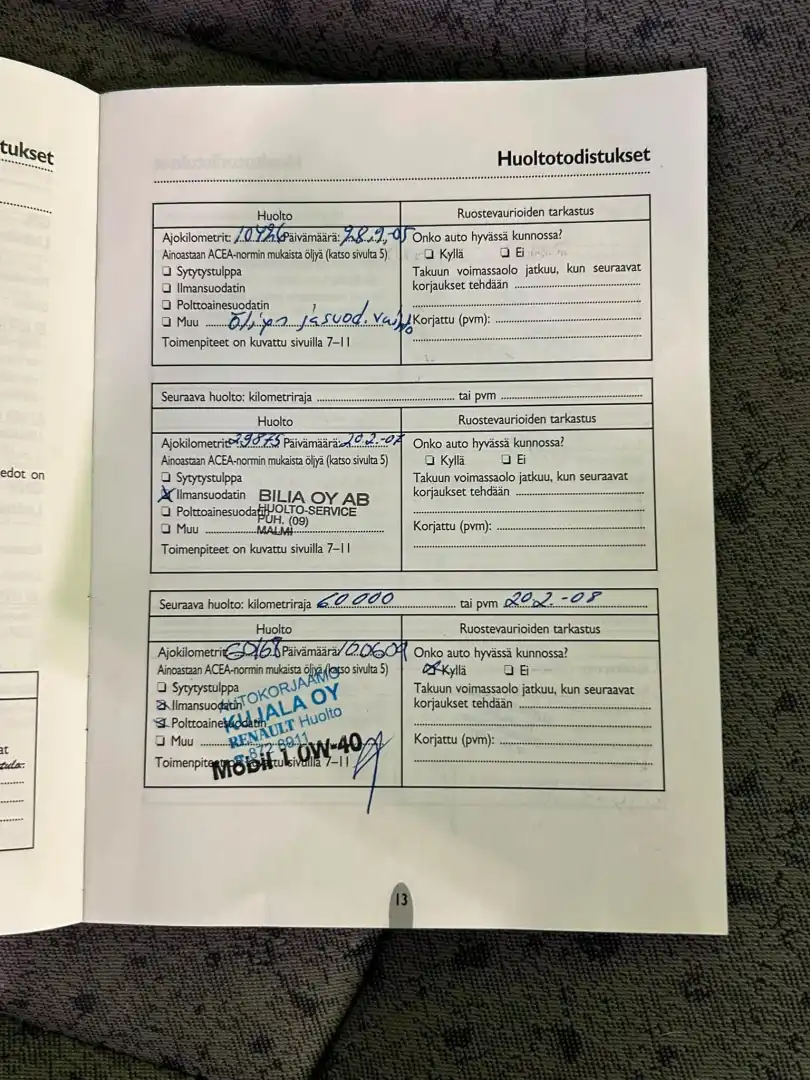 tukset
edot on
at
Huoltotodistukset
Huolto
Ajokilometrit: 10426 Päivämäärä: 28.9.-05
Ainoastaan ACEA-normin mukaista öljyä (katso sivulta 5)
Sytytystulppa
Ilmansuodatin
Polttoainesuodatin
Muu Öljyn ja suod. vaihto
Toimenpiteet on kuvattu sivuilla 7–11
Ruostevaurioiden tarkastus
Onko auto hyvässä kunnossa?
Kyllä Ei
Takuun voimassaolo jatkuu, kun seuraavat
korjaukset tehdään
Korjattu (pvm):
Seuraava huolto: kilometriraja tai pvm
Huolto
Ajokilometrit: 29875 Päivämäärä: 20.2.-07
Ainoastaan ACEA-normin mukaista öljyä (katso sivulta 5)
Sytytystulppa
Ilmansuodatin
Polttoainesuodatin
Muu
BILIA OY AB
HUOLTO-SERVICE
PUH. (09)
MALMI
Toimenpiteet on kuvattu sivuilla 7–11
Ruostevaurioiden tarkastus
Onko auto hyvässä kunnossa?
Kyllä Ei
Takuun voimassaolo jatkuu, kun seuraavat
korjaukset tehdään
Korjattu (pvm):
Seuraava huolto: kilometriraja 60 000 tai pvm 20.2.-08
Huolto
Ajokilometrit: 60168 Päivämäärä: 100609
Ainoastaan ACEA-normin mukaista öljyä (katso sivulta 5)
Sytytystulppa
Ilmansuodatin
Polttoainesuodatin
Muu
AUTOKORJAAMO
KUJALA OY
RENAULT Huolto
Mobil 1 0W-40
Toimenpiteet on kuvattu sivuilla 7–11
Ruostevaurioiden tarkastus
Onko auto hyvässä kunnossa?
Kyllä Ei
Takuun voimassaolo jatkuu, kun seuraavat
korjaukset tehdään
Korjattu (pvm):
13